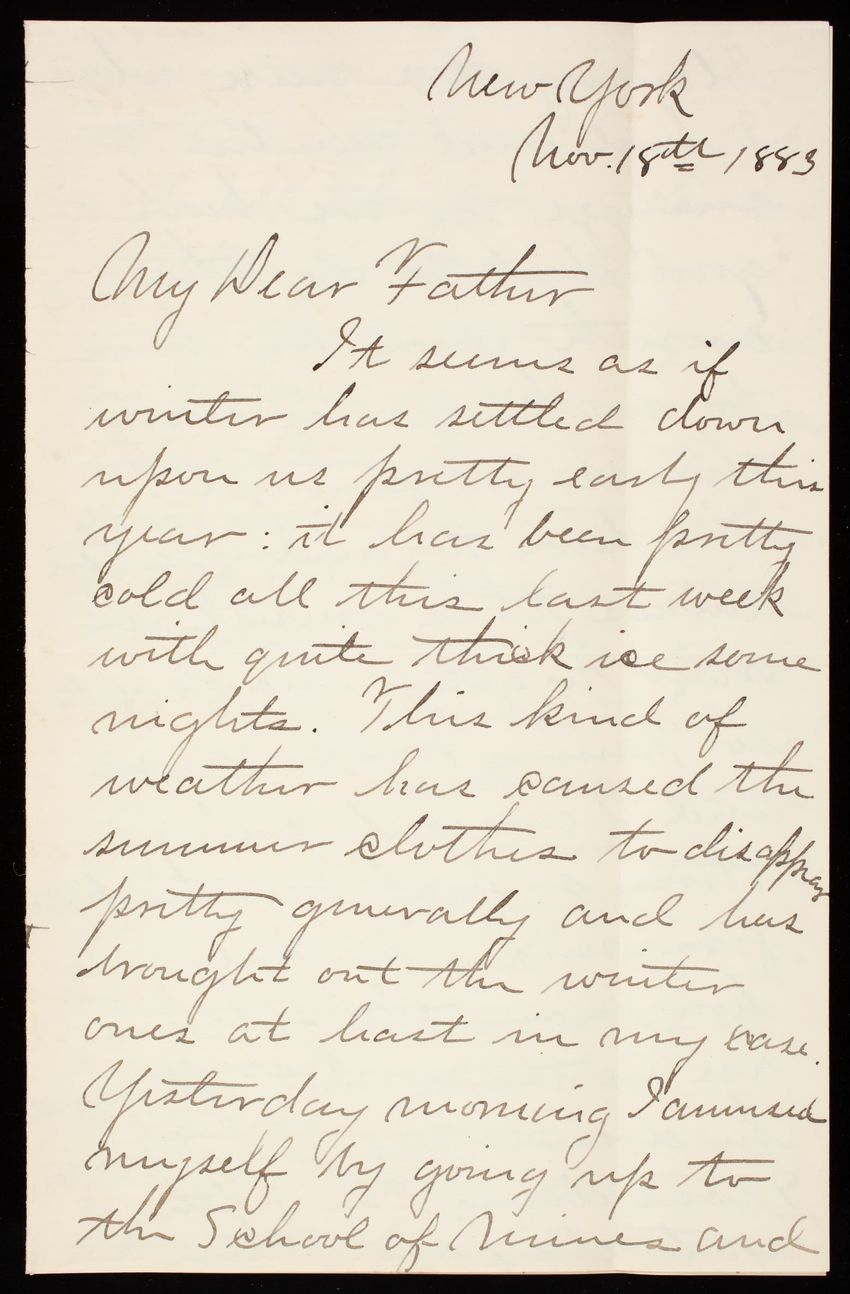 New York
Nov. 18th 1883
My Dear Father
It seems as if
winter has settled down
upon us pretty early this
year : it has been pretty
cold all this last week
with quite thick ice some
nights. This kind of
weather has caused the
summer clothes to disappear
pretty generally and has
brought out the winter
ones at least in my case.
Yesterday morning I amused
myself by going up to
the School of Mines and